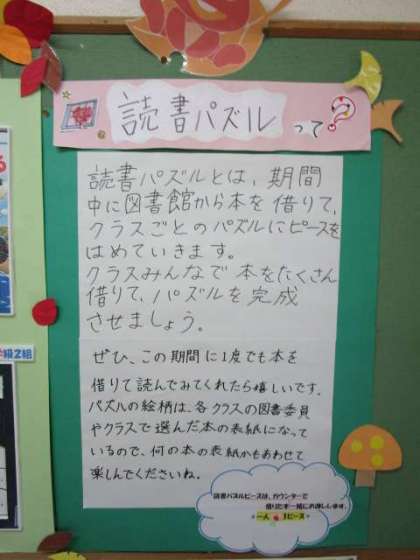 読書パズルって?
読書パズルとは、期間
中に図書館から本を借りて、
クラスごとのパズルにピースを
はめていきます。
クラスみんなで本をたくさん
借りて、パズルを完成
させましょう。
ぜひ、この期間に1度でも本を
借りて読んでみてくれたら嬉しいです。
パズルの絵柄は、各クラスの図書委員
やクラスで選んだ本の表紙になって
いるので、何の本の表紙かもあわせて
楽しんでくださいね。
読書パズルピースは、カウンターで
借りた本と一緒にお渡しします。
級2組